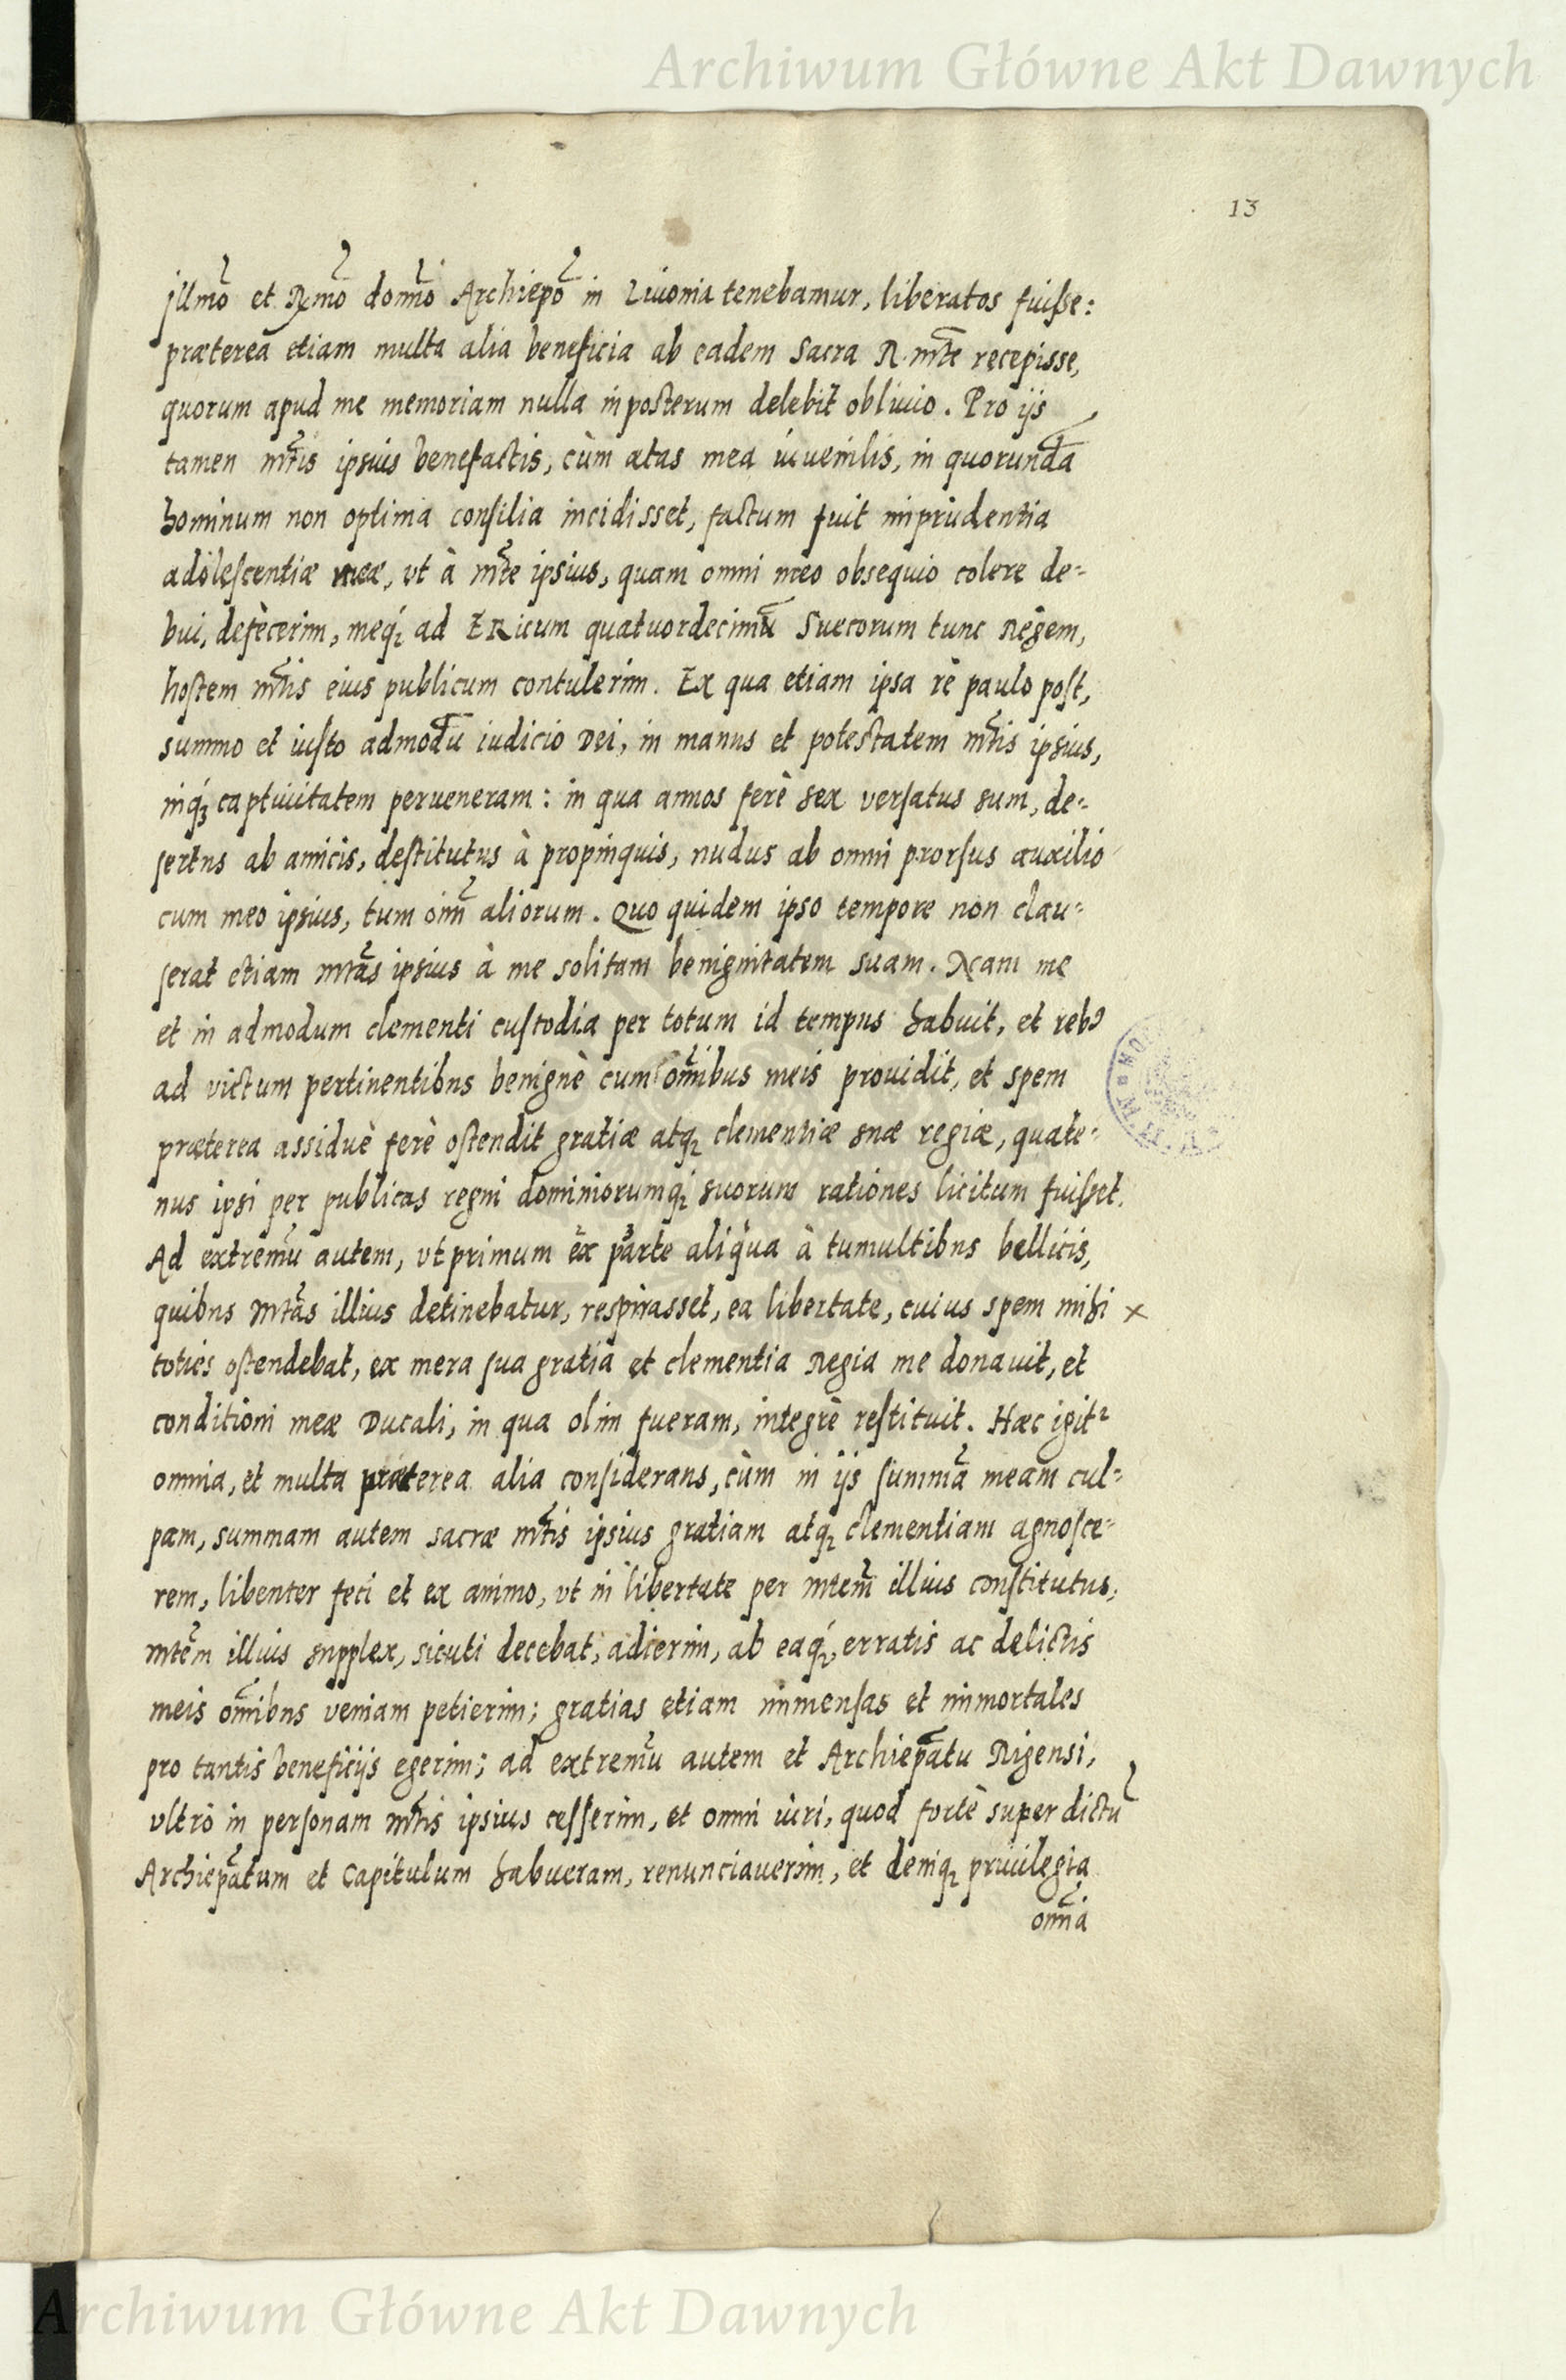 Archiwum Główne Akt Dawnych
13
jllmo et Rxmo domno Archiepo in Liuonia tenebamur, liberatos fuisse:
præterea etiam multa alia beneficia ab eadem Sacra R. mte recepisse,
quorum apud me memoriam nulla inposterum delebit obliuio. Pro ijs
tamen mtis ipsius benefactis, cùm ætas mea iuuenilis, in quorundã
hominum non optima consilia incidisset, factum fuit imprudentia
adolescentiæ meæ, vt à mte ipsius, quam omni meo obsequio colere de=
bui, defecerim, meq; ad ERicum quatuordecimũ Suecorum tunc Regem,
hostem mtis eius publicum contulerim. Ex qua etiam ipsa re paulo post,
summo et iusto admodũ iudicio Dei, in manus et potestatem mtis ipsius,
inq; captiuitatem perueneram: in qua annos ferè sex versatus sum, de=
sertus ab amicis, destitutus à propinquis, nudus ab omni prorsus auxilio
cum meo ipsius, tum oim aliorum. Quo quidem ipso tempore non clau=
serat etiam mtas ipsius à me solitam benignitatem suam. Nam me
et in admodum clementi custodia per totum id tempus habuit, et reb9
ad victum pertinentibus benignè cum omibus meis prouidit, et spem
præterea assiduè ferè ostendit gratiæ atq; clementiæ suæ regiæ, quate=
nus ipsi per publicas regni dominiorumq; suorum rationes licitum fuisset.
Ad extremũ autem, vt primum ex parte aliqua à tumultibus bellicis,
quibus mtas illius detinebatur, respirasset, ea libertate, cuius spem mihi x
toties ostendebat, ex mera sua gratia et clementia Regia me donauit, et
conditioni meæ Ducali, in qua olim fueram, integrè restituit. Hæc igit2
omnia, et multa præterea alia considerans, cùm in ijs summã meam cul=
pam, summam autem sacræ mtis ipsius gratiam atq; clementiam agnosce=
rem, libenter feci et ex animo, vt in libertate per mtem illius constitutus,
mtem illius supplex, sicuti decebat, adierim, ab eaq; erratis ac delictis
meis omibus veniam petierim; gratias etiam immensas et immortales
pro tantis beneficijs egerim; ad extremũ autem et Archiepatu Rigensi,
vltrò in personam mtis ipsius cesserim, et omni iuri, quod fortè super dictũ
Archiepatum et Capitulum habueram, renunciauerim, et deniq; priuilegia
omia
Archiwum Główne Akt Dawnych